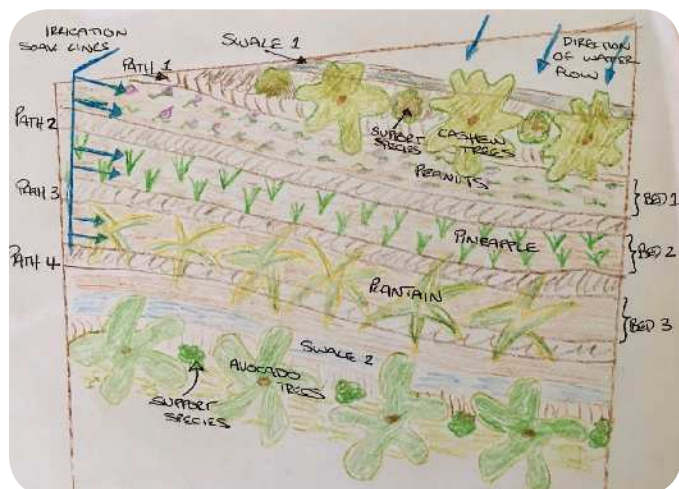 IRRIGATION
SOAK LINES
SWALE 1
PATH 1
DIRECTION
OF WATER
FLOW
PATH 2
SUPPORT
SPECIES
CASHEW
TREES
PEANUTS
BED 1
PATH 3
PINEAPPLE
BED 2
PATH 4
PLANTAIN
BED 3
SWALE 2
AVOCADO
TREES
SUPPORT
SPECIES